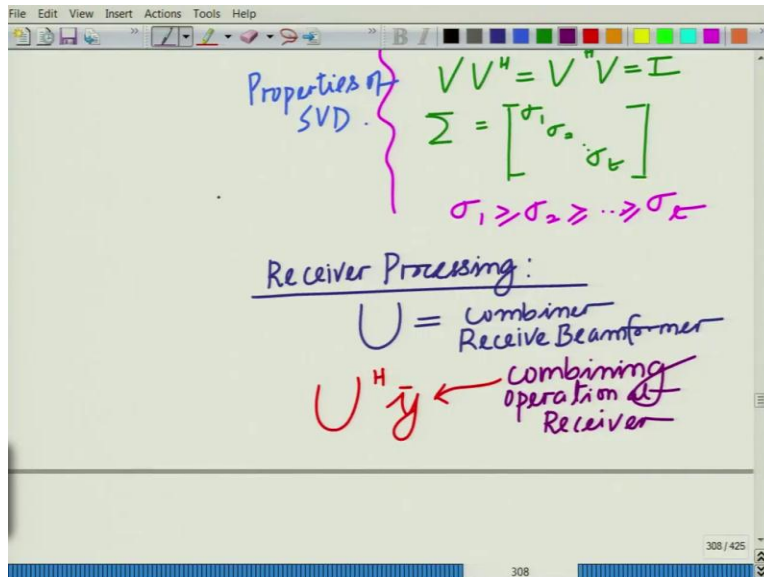 File Edit View Insert Actions Tools Help
B I
Properties of
SVD.
V V^H = V^H V = I
Σ = [σ₁ σ₂ ⋱ σ_t]
σ₁ ≥ σ₂ ≥ ... ≥ σ_t
Receiver Processing:
U = combiner
Receive Beamformer
U^H ȳ ← combining
operation at
Receiver
308 / 425
308